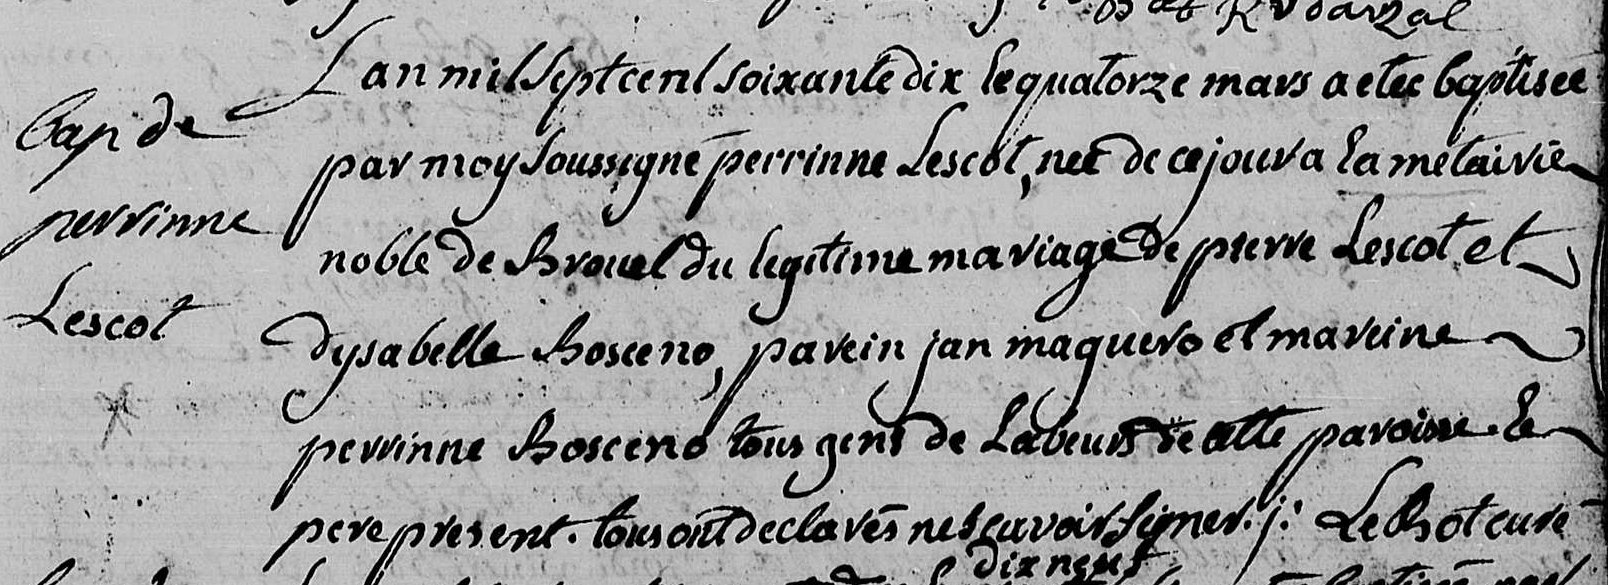 Lan mil sept cent soixante dix le quatorze mars a eteé baptiseé
bap de
par moy soussigné perrinne Lescot, neé de ce jour a la metairie
perrinne
noble de Brouel du legitime mariage de pierre Lescot et
Lescot
dysabelle Bosceno, parein jan maguero et mareine
perrinne Bosceno tous gens de Labeurs de cette paroisse. Le
pere present. tous ont declarés ne scavoir signer. j. Le Bot curé
dix neuf